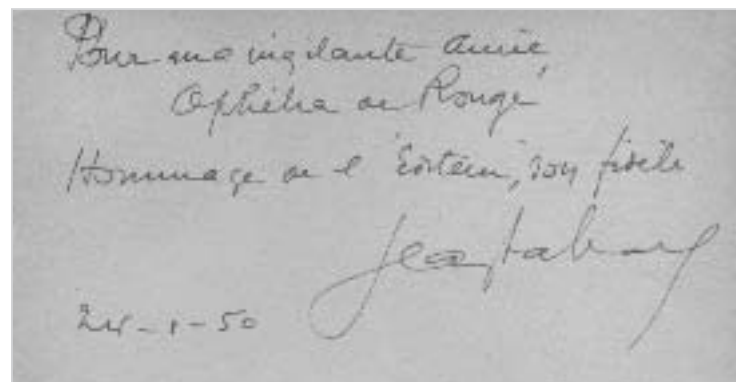 Pour ma vigilante amie,
Ophélia de Rougé
Hommage de l'"Editeur", son fidèle
24-1-50